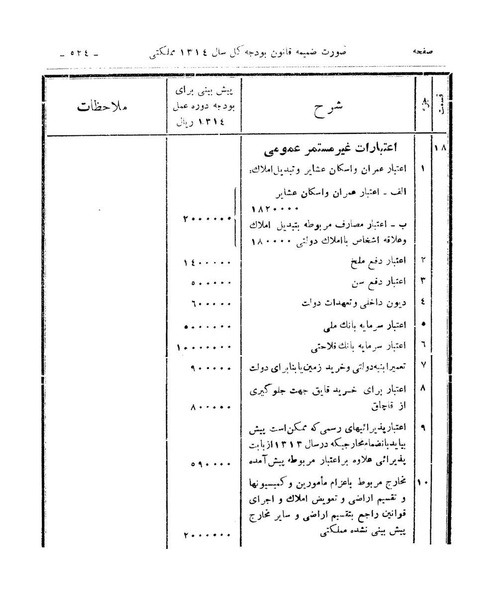 صفحه
صورت ضمیمه قانون بودجه کل سال ۱۳۱٤ مملکتی
- ٥٢٤ -
قسمت
جزء
شرح
پیش بینی برای
بودجه دوره عمل
۱۳۱٤ ریال
ملاحظات
۱۸
اعتبارات غیر مستمر عمومی
۱
اعتبار عمران واسکان عشایر وتبدیل املاك:
الف - اعتبار عمران واسکان عشایر
۱۸۲۰۰۰۰
ب - اعتبار مصارف مربوطه بتبدیل املاك
وعلاقه اشخاص باملاك دولتی ۱۸۰۰۰۰
۲۰۰۰۰۰۰
۲
اعتبار دفع ملخ
۱٤۰۰۰۰۰
۳
اعتبار دفع سن
٥۰۰۰۰۰
٤
دیون داخلی وتعهدات دولت
٦۰۰۰۰۰
٥
اعتبار سرمایه بانك ملی
٥۰۰۰۰۰۰
٦
اعتبار سرمایه بانك فلاحتی
۱۰۰۰۰۰۰۰
۷
تعمیر ابنیه دولتی وخرید زمین یا بنا برای دولت
۹۰۰۰۰۰
۸
اعتبار برای خرید قایق جهت جلوگیری
از قاچاق
۸۰۰۰۰۰
۹
اعتبار پذیرائیهای رسمی که ممکن است پیش
بیاید بانضمام مخارجیکه در سال ۱۳۱۳ از بابت
پذیرائی علاوه بر اعتبار مربوطه پیش آمده
٥۹۰۰۰۰
۱۰
مخارج مربوط باعزام مأمورین و کمیسیونها
و تقسیم اراضی و تعویض املاك و اجرای
قوانین راجع بتقسیم اراضی و سایر مخارج
پیش بینی نشده مملکتی
۲۰۰۰۰۰۰